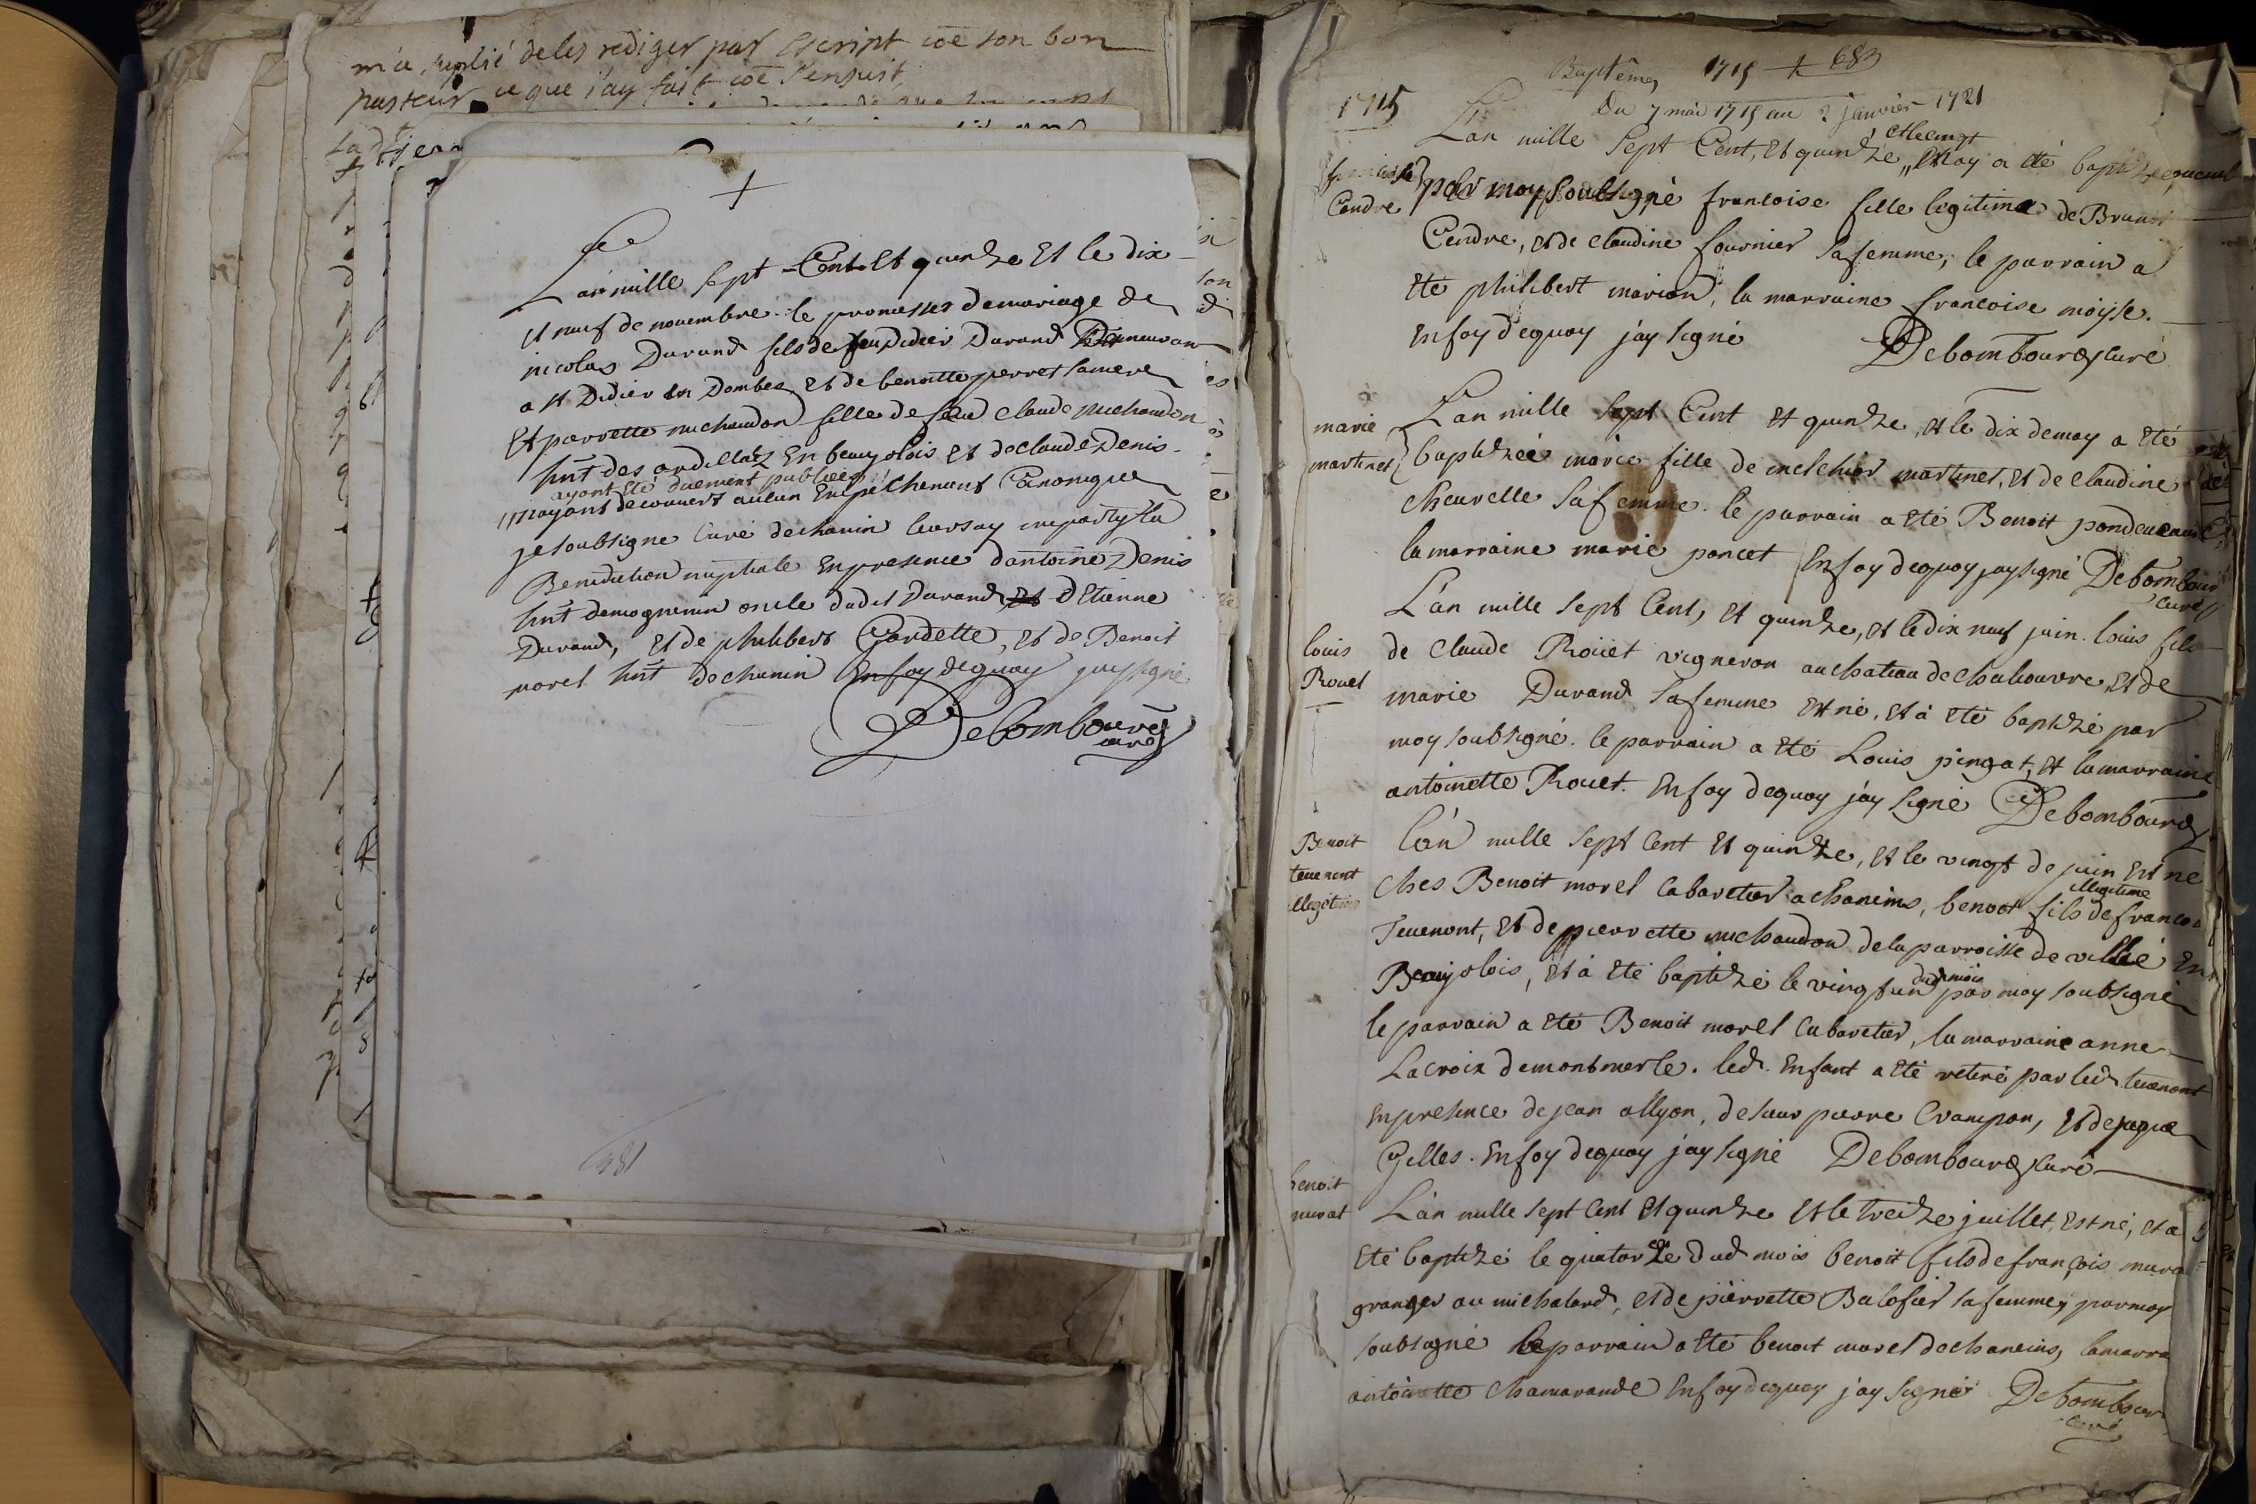 de les rediger par escript coē son bon
pasteur ce que j'ay fait coē s'ensuit
+
L'an mille sept Cent et quinze Et le dix
Et neuf de novembre le promesses de mariage de
nicolas Durand fils de feu Didier Durand Demeuran
a st Didier en Dombes et de benoitte perret sa mere
Et pierrette michaudon fille de feu Claude michaudon
hñt des ardillats En beaujolois et de claude Denis
ayant été duement publiées
n'ayant decouvert aucun Empechement Canonique
je soubsigné Curé de chanin leurs ay imparty la
Benediction nuptiale En presence d'antoine Denis
hñt demognenin oncle dudit Durand d'Etienne
Durand, Et de philibert Gardette, et de Benoit
morel hñt de chanin En foy de quoy j'ay signé
Debombourg
curé
381
Baptêmes 1715 + 683
1715
Du 7 mai 1715 au 2 janvier 1721
et le cinqt
L'an mille Sept Cent, et quinze, May a été baptizée
Cendre
par moy soubsigné francoise fille legitime de
Cendre, et de claudine fournier sa femme, le parrain a
été philibert marion, la marraine francoise moyse.
En foy de quoy j'ay signé Debombourg curé
marie
martinet
L'an mille sept Cent et quinze, et le dix de may a été
baptizée marie fille de melchior martinet, et de claudine
chevrelle sa femme. le parrain a été Benoit
la marraine marie poncet En foy de quoy j'ay signé Debombour
curé
louis
Rouet
L'an mille sept Cent, et quinze, et le dix neuf juin. louis fils
de Claude Roüet vigneron au chateau de chaliouvre, et de
marie Durand sa femme est né, et à été baptizé par
moy soubsigné. le parrain a été Louis pingat, et la marraine
antoinette Rouet. En foy de quoy j'ay signé Debombourg
Benoit
tevenont
illegitime
L'an mille sept Cent et quinze, et le vingt de juin est né
illegitime
Ches Benoit morel Cabaretier a chaneins, benoit fils de francois
Tevenont, et de pierrette michaudon de la parroisse de villié En
Beaujolois, et à été baptizé le vingt un par moy soubsigné
dud. mois
le parrain a été Benoit morel Cabaretier, la marraine anne
Lacroix de montmerle. led. Enfant a été retiré par led. tevenont
En presence de jean allyon, de sieur pierre Crampon, et de jaque
Gelles. En foy de quoy j'ay signé Debombourg curé
benoit
murat
L'an mille sept Cent Et quinze et le treize juillet, est né, et a
été baptizé le quatorze dud mois benoit fils de françois mura
granger au michalard, et de pierrette Balofier sa femme, par moy
soubsigné le parrain a été benoit morel de chaneins, la marra
antoinette chamarande En foy de quoy j'ay signé Debombour
curé